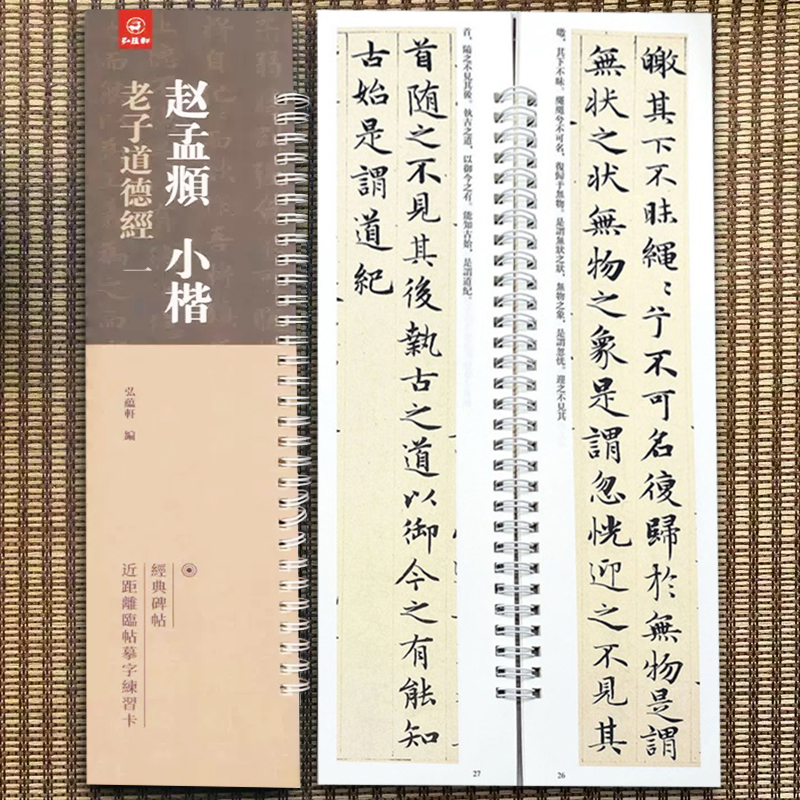 弘蕴軒
赵孟頫 小楷
老子道德經 一
弘蕴軒 編
經典碑帖
近距離臨帖摹字練習卡
皦其下不昧繩〻兮不可名復歸於無物是謂
無狀之狀無物之象是謂忽恍迎之不見其
其下不昧。繩繩兮不可名，復歸乎無物，是謂無狀之狀，無物之象，是謂忽恍。迎之不見其
26
首，隨之不見其後。執古之道，以御今之有。能知古始，是謂道紀。
首随之不見其後執古之道以御今之有能知
古始是謂道紀
27